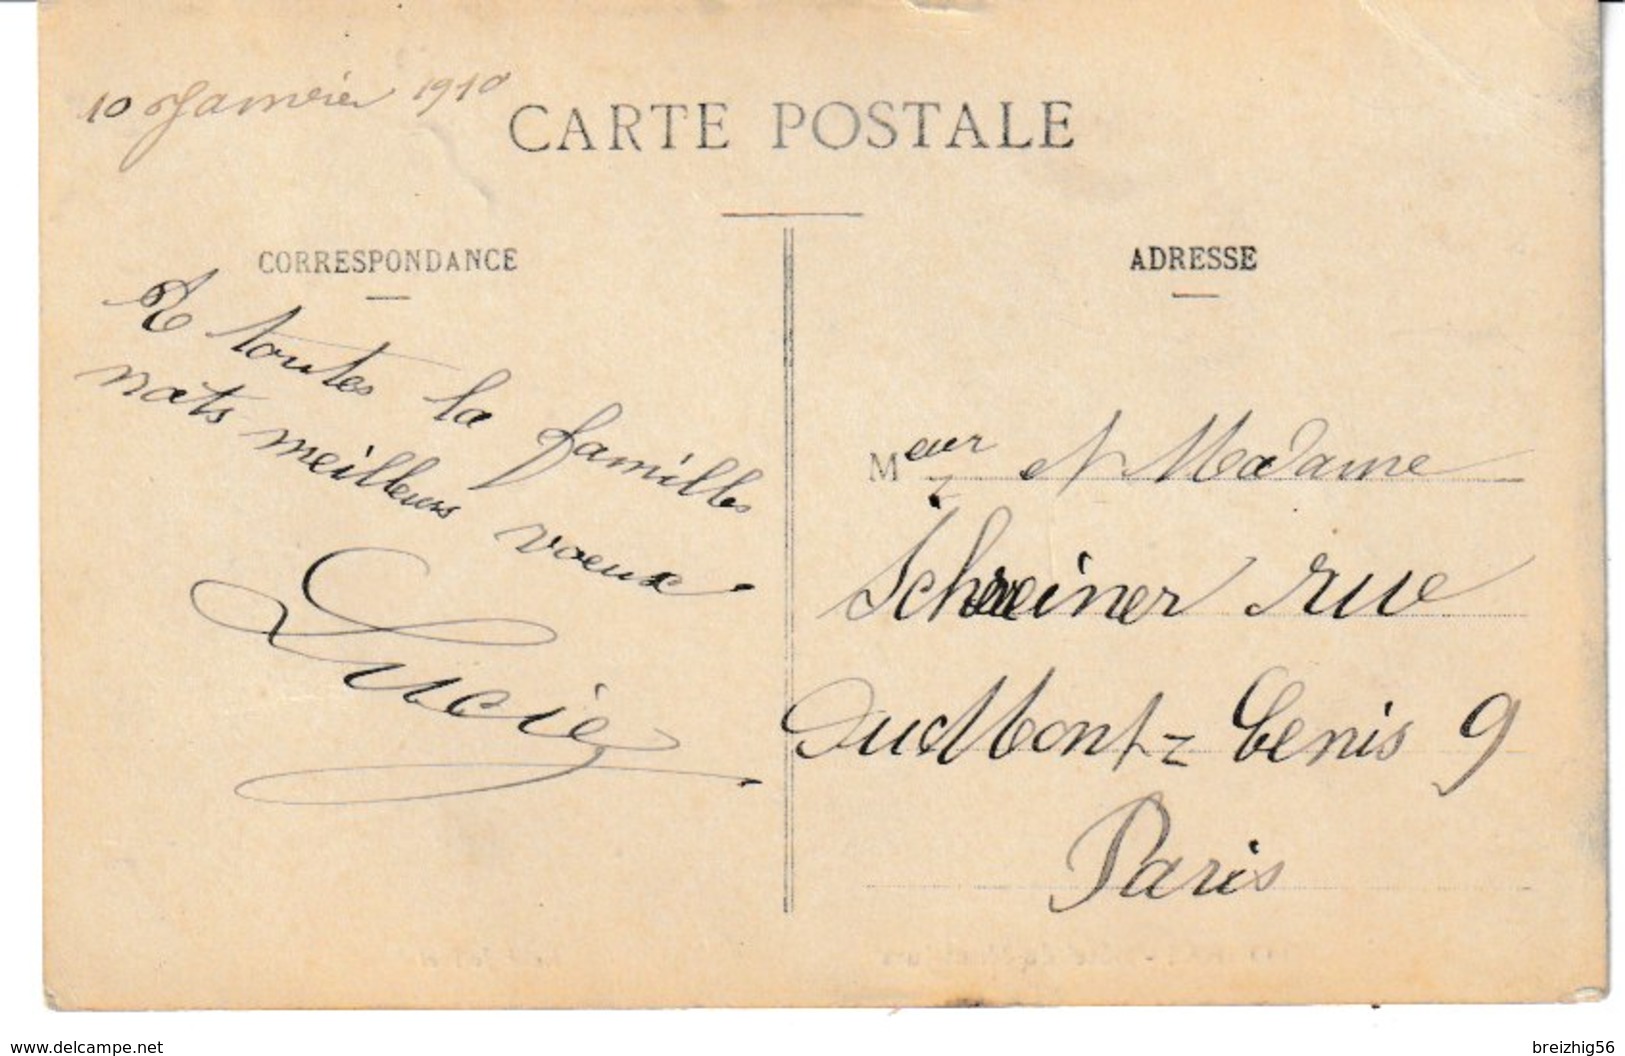 10 Janvier 1910
CARTE POSTALE
CORRESPONDANCE
A toutes la familles
nots meilleurs voeux
Lucie
ADRESSE
Meur et Madame
Schreiner rue
Du Mont-Cenis 9
Paris
www.delcampe.net
breizhig56